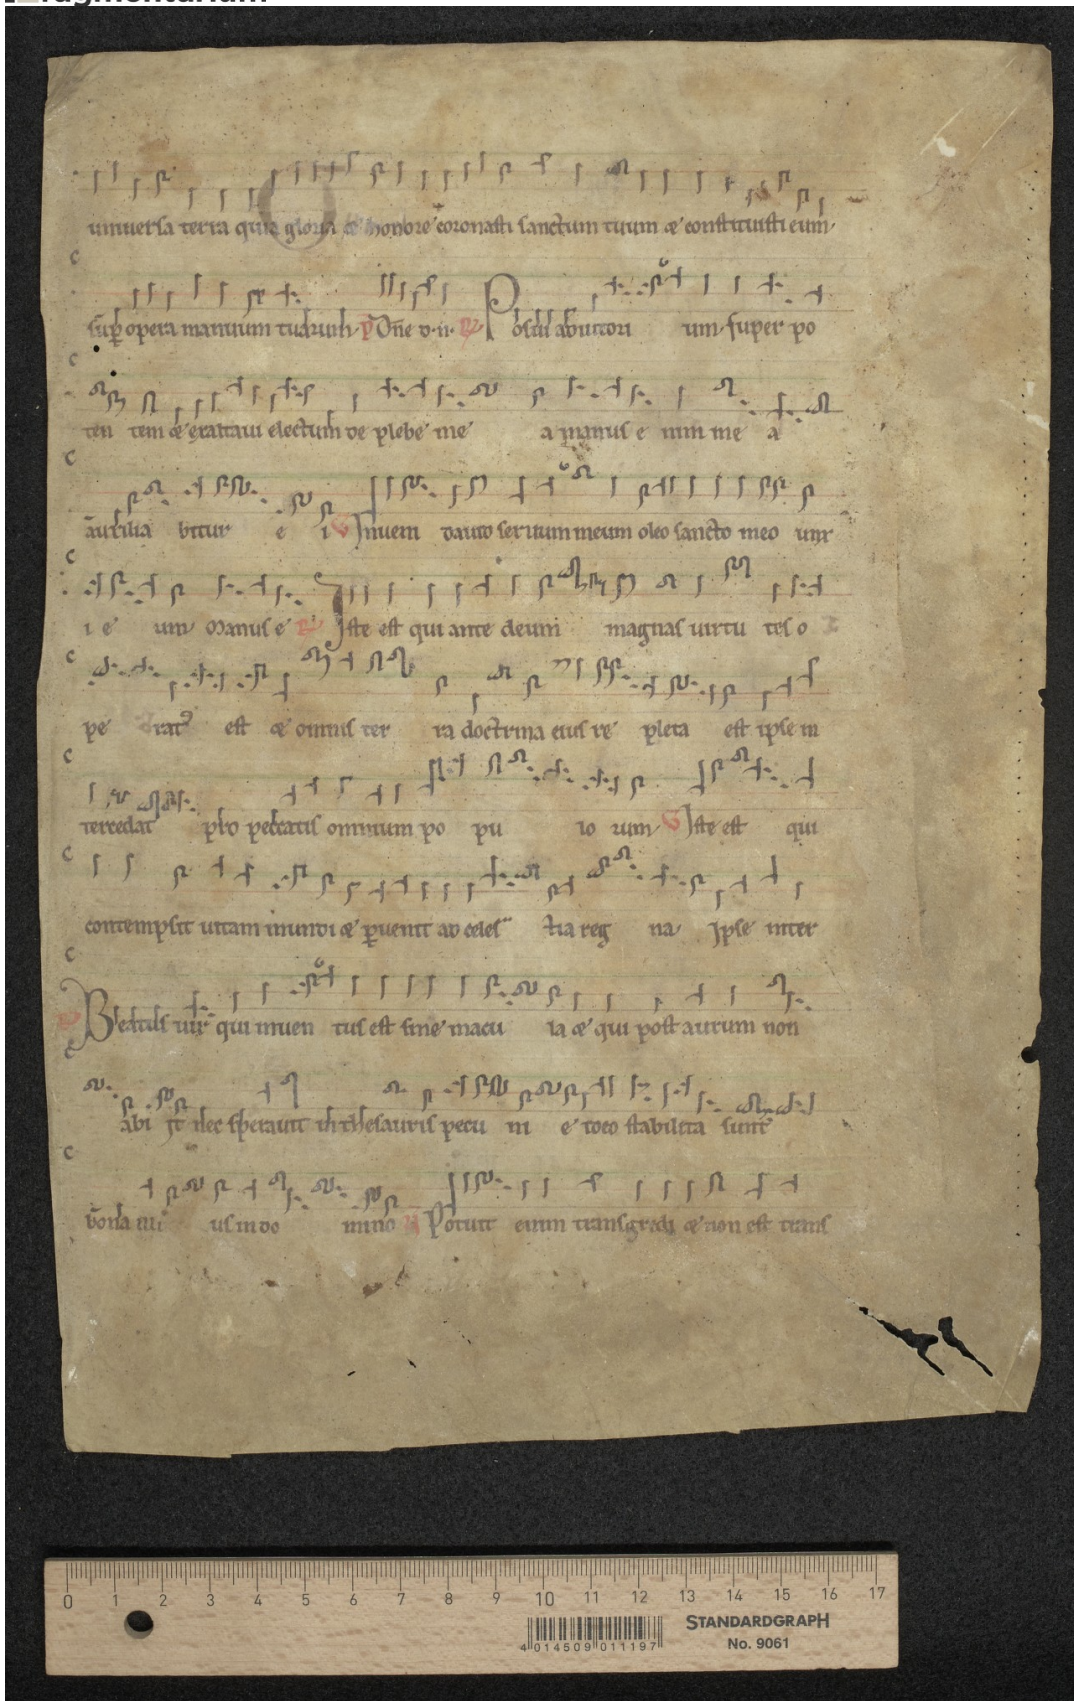 uniuersa terra quia gloria & honore coronasti sanctum tuum & constituisti eum
sup opera manuum tuarum. Dne d. n. Posui adiutori um super po
ten tem & exaltaui electum de plebe me a manus e nim me a
auxilia bitur e i V Inueni dauid seruum meum oleo sancto meo unx
i e um Manus e R Iste est qui ante deum magnas uirtu tes o
pe rat9 est & omnis ter ra doctrina eius re pleta est ipse in
tercedat pro peccatis omnium po pu lo rum V Iste est qui
contempsit uitam mundi & puenit ad celes tia reg na Ipse inter
Beatus uir qui inuen tus est sine macu la & qui post aurum non
abi it nec sperauit in thesauris pecu ni e ideo stabilita sunt
bona illi us in do mino V Potuit enim transgredi & non est trans
0 1 2 3 4 5 6 7 8 9 10 11 12 13 14 15 16 17
4 014509 011197
STANDARDGRAPH
No. 9061